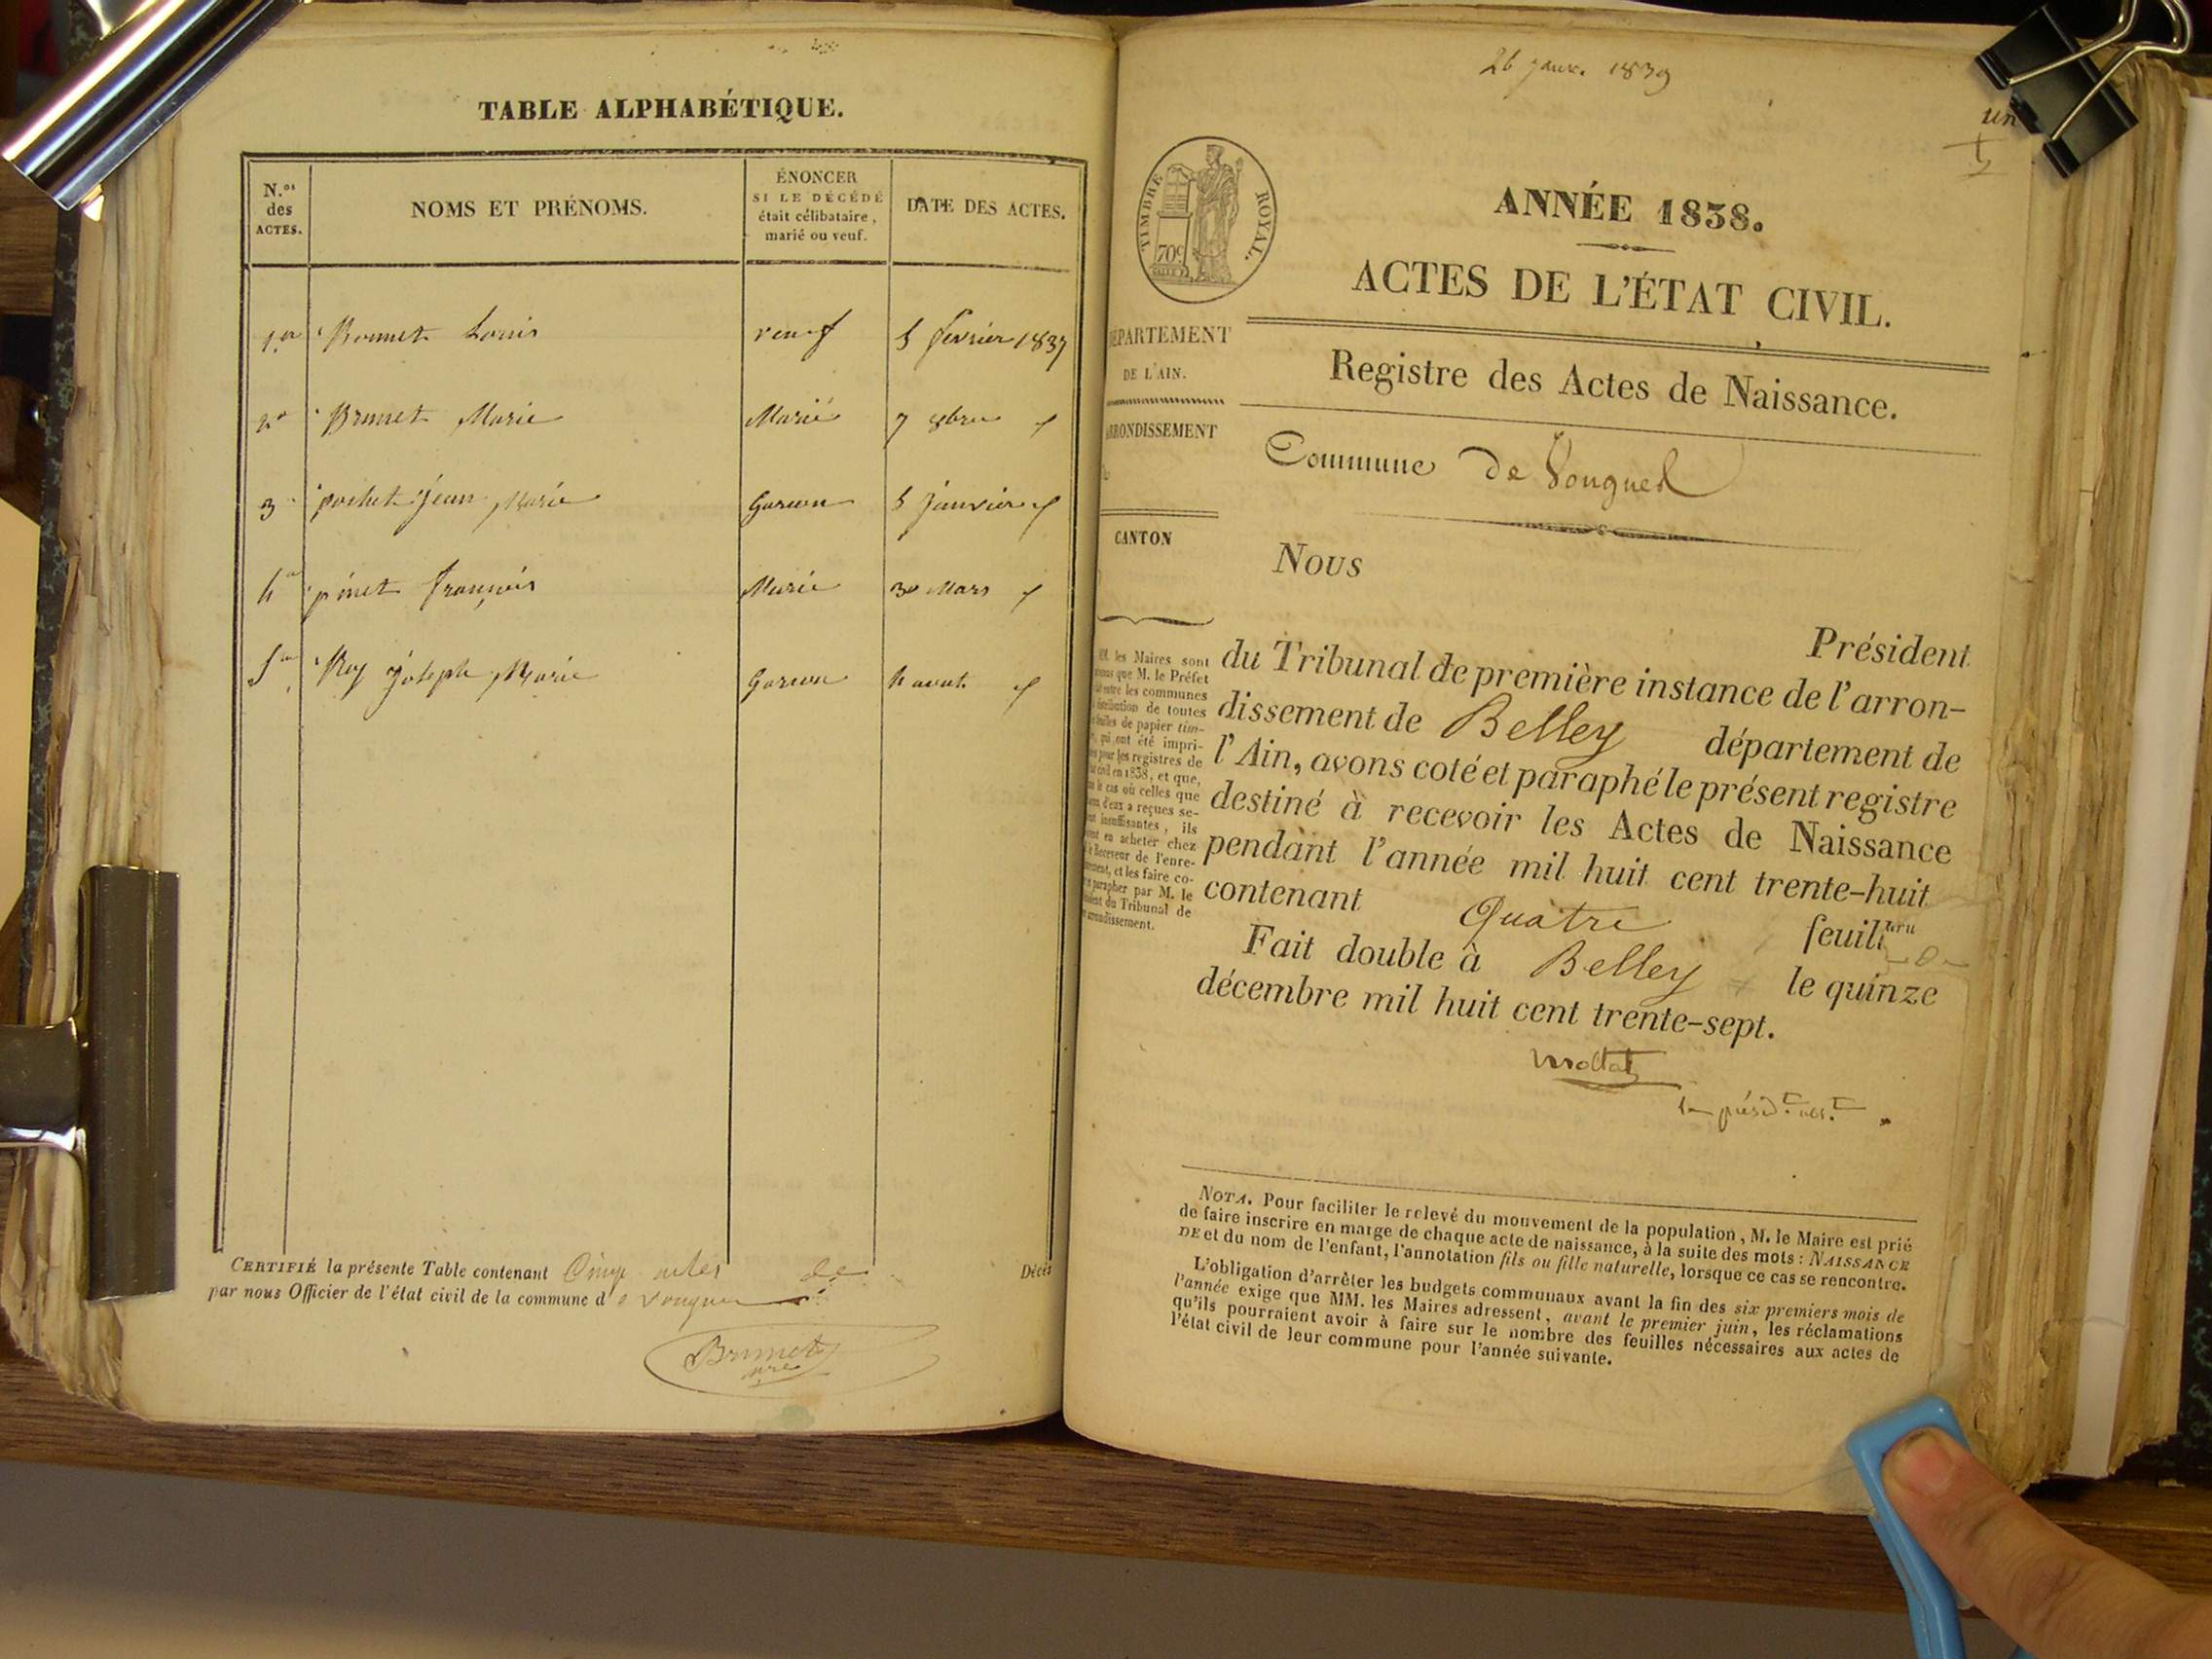 TABLE ALPHABÉTIQUE.
N.os des ACTES.
NOMS ET PRÉNOMS.
ÉNONCER
SI LE DÉCÉDÉ
était célibataire,
marié ou veuf.
DATE DES ACTES.
1.er Bonnet Louis veuf 5 février 1837
2e Brunet Marie Marié 7 8bre
3 pochet jean Marie Garson 5 janvier
4e pinet françois Marié 30 Mars
5me Roy joseph Marie Garson 4 aout
CERTIFIÉ la présente Table contenant Cinq actes de Décès
par nous Officier de l'état civil de la commune de vongnes
Brunet
26 janv. 1839
un
TIMBRE ROYAL.
70c
ANNÉE 1838.
ACTES DE L'ÉTAT CIVIL.
DÉPARTEMENT
DE L'AIN.
Registre des Actes de Naissance.
ARRONDISSEMENT
Commune de Vongnes
CANTON
Nous
Président
du Tribunal de première instance de l'arron-
dissement de Belley département de
l'Ain, avons coté et paraphé le présent registre
destiné à recevoir les Actes de Naissance
pendant l'année mil huit cent trente-huit
contenant Quatre feuil
Fait double à Belley le quinze
décembre mil huit cent trente-sept.
MM. les Maires sont
que M. le Préfet
entre les communes
distribution de toutes
feuilles de papier tim-
qui ont été impri-
pour les registres de
civil en 1838, et que,
le cas où celles que
d'eux a reçues se-
insuffisantes, ils
en acheter chez
Receveur de l'enre-
et les faire co-
parapher par M. le
du Tribunal de
arrondissement.
NOTA. Pour faciliter le relevé du mouvement de la population, M. le Maire est prié
de faire inscrire en marge de chaque acte de naissance, à la suite des mots : NAISSANCE
DE et du nom de l'enfant, l'annotation fils ou fille naturelle, lorsque ce cas se rencontre.
L'obligation d'arrêter les budgets communaux avant la fin des six premiers mois de
l'année exige que MM. les Maires adressent, avant le premier juin, les réclamations
qu'ils pourraient avoir à faire sur le nombre des feuilles nécessaires aux actes de
l'état civil de leur commune pour l'année suivante.